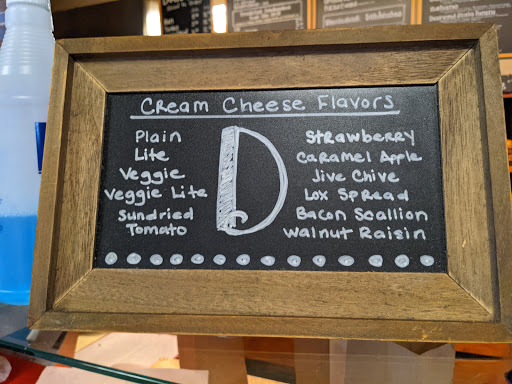 Cream Cheese Flavors
Plain
Lite
Veggie
Veggie Lite
Sundried
Tomato
D
Strawberry
Caramel Apple
Jive Chive
Lox Spread
Bacon Scallion
Walnut Raisin